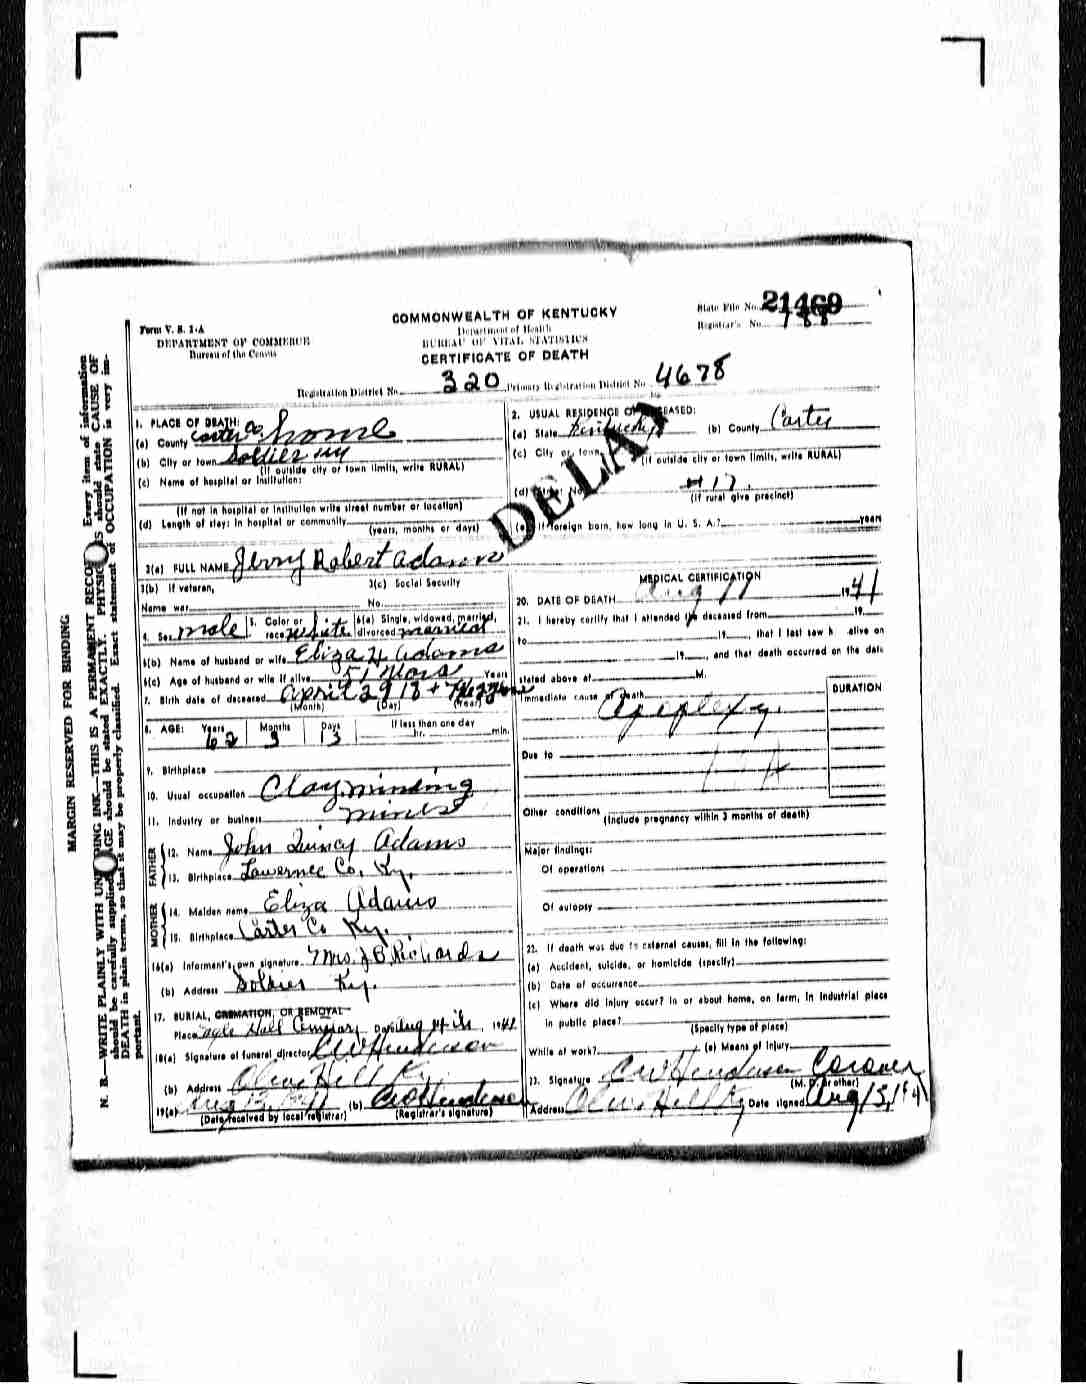 State File No. 21469
Form V. S. 1-A
COMMONWEALTH OF KENTUCKY
Registrar's No. 188
DEPARTMENT OF COMMERCE
Department of Health
Bureau of the Census
BUREAU OF VITAL STATISTICS
CERTIFICATE OF DEATH
Registration District No. 320 Primary Registration District No. 4678
MARGIN RESERVED FOR BINDING
N. B.—WRITE PLAINLY WITH INK—THIS IS A PERMANENT Every item of information
should be carefully supplied. AGE should be stated EXACTLY. should state CAUSE OF
DEATH in plain terms, so that it may be properly classified. Exact statement of OCCUPATION is very im-
portant.
DELAY
1. PLACE OF DEATH:
(a) County Carter Co home
(b) City or town Soldier Ky
(If outside city or town limits, write RURAL)
(c) Name of hospital or institution:
(If not in hospital or institution write street number or location)
(d) Length of stay: In hospital or community
(years, months or days)
2. USUAL RESIDENCE OF DECEASED:
(a) State Kentucky (b) County Carter
(c) City or town
(If outside city or town limits, write RURAL)
(d) Street No.
(If rural give precinct)
(e) If foreign born, how long in U. S. A.? years
3(a) FULL NAME Jerry Robert Adams
3(b) If veteran,
Name war
3(c) Social Security
No.
4. Sex male 5. Color or race white 6(a) Single, widowed, married, divorced married
6(b) Name of husband or wife Eliza H Adams
6(c) Age of husband or wife if alive 51 Years
7. Birth date of deceased April 29 18
(Month) (Day) (Year)
8. AGE: Years 62 Months 3 Days 13 If less than one day
hr. min.
9. Birthplace
10. Usual occupation Clay minding
11. Industry or business mines
FATHER
12. Name John Quincy Adams
13. Birthplace Lawernce Co, Ky.
MOTHER
14. Maiden name Eliza Adams
15. Birthplace Carter Co Ky.
16(a) Informant's own signature Mrs. J B Richards
(b) Address Soldier Ky.
17. BURIAL, CREMATION, OR REMOVAL
Place Hall Cemetary Date Aug 14 th, 1941
18(a) Signature of funeral director C W Henderson
(b) Address Olive Hill Ky
19(a) Aug 13, (b) C W Henderson
(Date received by local registrar) (Registrar's signature)
MEDICAL CERTIFICATION
20. DATE OF DEATH Aug 11 1941
21. I hereby certify that I attended the deceased from 19
to 19, that I last saw h alive on
19, and that death occurred on the date
stated above at M.
Immediate cause of death
Apoplexy.
DURATION
Due to
Other conditions
(Include pregnancy within 3 months of death)
Major findings:
Of operations
Of autopsy
22. If death was due to external causes, fill in the following:
(a) Accident, suicide, or homicide (specify)
(b) Date of occurrence
(c) Where did injury occur? In or about home, on farm, in industrial place
in public place?
(Specify type of place)
While at work? (e) Means of Injury
23. Signature C W Henderson Coroner
(M. D. or other)
Address Olive Hill Ky Date signed Aug 13, 1941